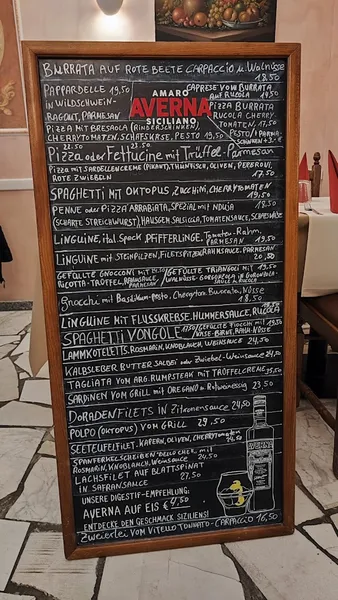 BURRATA AUF ROTE BEETE CARPACCIO, u. Walnüsse
18.50
PAPPARDELLE 19,50
IN WILDSCHWEIN-
RAGOUT, PARMESAN
AMARO
AVERNA
SICILIANO
CAPRESE VOM BURRATA
AUF RUCOLA 19,50
PIZZA BURRATA
RUCOLA CHERRY-
TOMATEN, 17.50
PIZZA MIT BRESAOLA (RINDERSCHINKEN),
CHERRYTOMATEN, SCHAFSKÄSE, PESTO 19.50
PESTO/PARMA-
SCHINKEN +3.- €
22.50 22.50
Pizza oder Fettucine mit Trüffel-Parmesan
PIZZA MIT SARDELLENCREME (PIKANT), THUNFISCH, OLIVEN, PEPERONI,
ROTE ZWIEBELN 17.50
SPAGHETTI MIT OKTOPUS, ZUCCHINI, CHERRYTOMATEN
19,50
PENNE oder PIZZA ARRABIATA, SPEZIAL MIT NDUJA 18.50
(SCHARFE STREICHWURST), HAUSGEM. SALSICCIA, TOMATENSAUCE,
LINGUINE, ital. Speck, PFIFFERLINGE, Tomaten-Rahm,
PARMESAN 19,50
LINGUINE MIT STEINPILZEN, FILETSPITZEN, RAHMSAUCE, PARMESAN
20,50
GEFÜLLTE GNOCCHI MIT
RICOTTA-TRÜFFEL, PARMESAN
GEFÜLLTE TRIANGOLI MIT 19,50
WALNÜSSE GORGONZOLA
Gnocchi mit Basilikum-Pesto, Cherrytom. Burrata, Nüsse
18.50
LINGUINE MIT FLUSSKREBSE, HUMMERSAUCE, RUCOLA
SPAGHETTI VONGOLE
GEFÜLLTE FIOCCHI MIT 19,50
KÄSE-BIRNE, RAHM-NÜSSE
LAMMKOTELETTS, ROSMARIN, KNOBLAUCH, WEINSAUCE 24.50
KALBSLEBER, BUTTER SALBEI oder ZWIEBEL-Weinsauce 24,50
TAGLIATA VOM ARG. RUMPSTEAK MIT TRÜFFELCREME
SARDINEN VOM GRILL MIT OREGANO u. Rotweinessig 23,50
DORADENFILETS IN Zitronensauce 24,50
POLPO (OKTOPUS) VOM GRILL 29,50
SEETEUFELFILET-KAPERN, OLIVEN, CHERRYtomaten
SPANFERKELSCHEIBEN DELLO CHEF, MIT
ROSMARIN, KNOBLAUCH, Weinsauce 24.50
LACHSFILET AUF BLATTSPINAT
IN SAFRANSAUCE 27,50
UNSERE DIGESTIF-EMPFEHLUNG:
AVERNA AUF EIS € 4,50
ENTDECKE DEN GESCHMACK SIZILIENS!
AVERNA
Zweierlei VOM VITELLO TONNATO - CARPACCIO 16,50